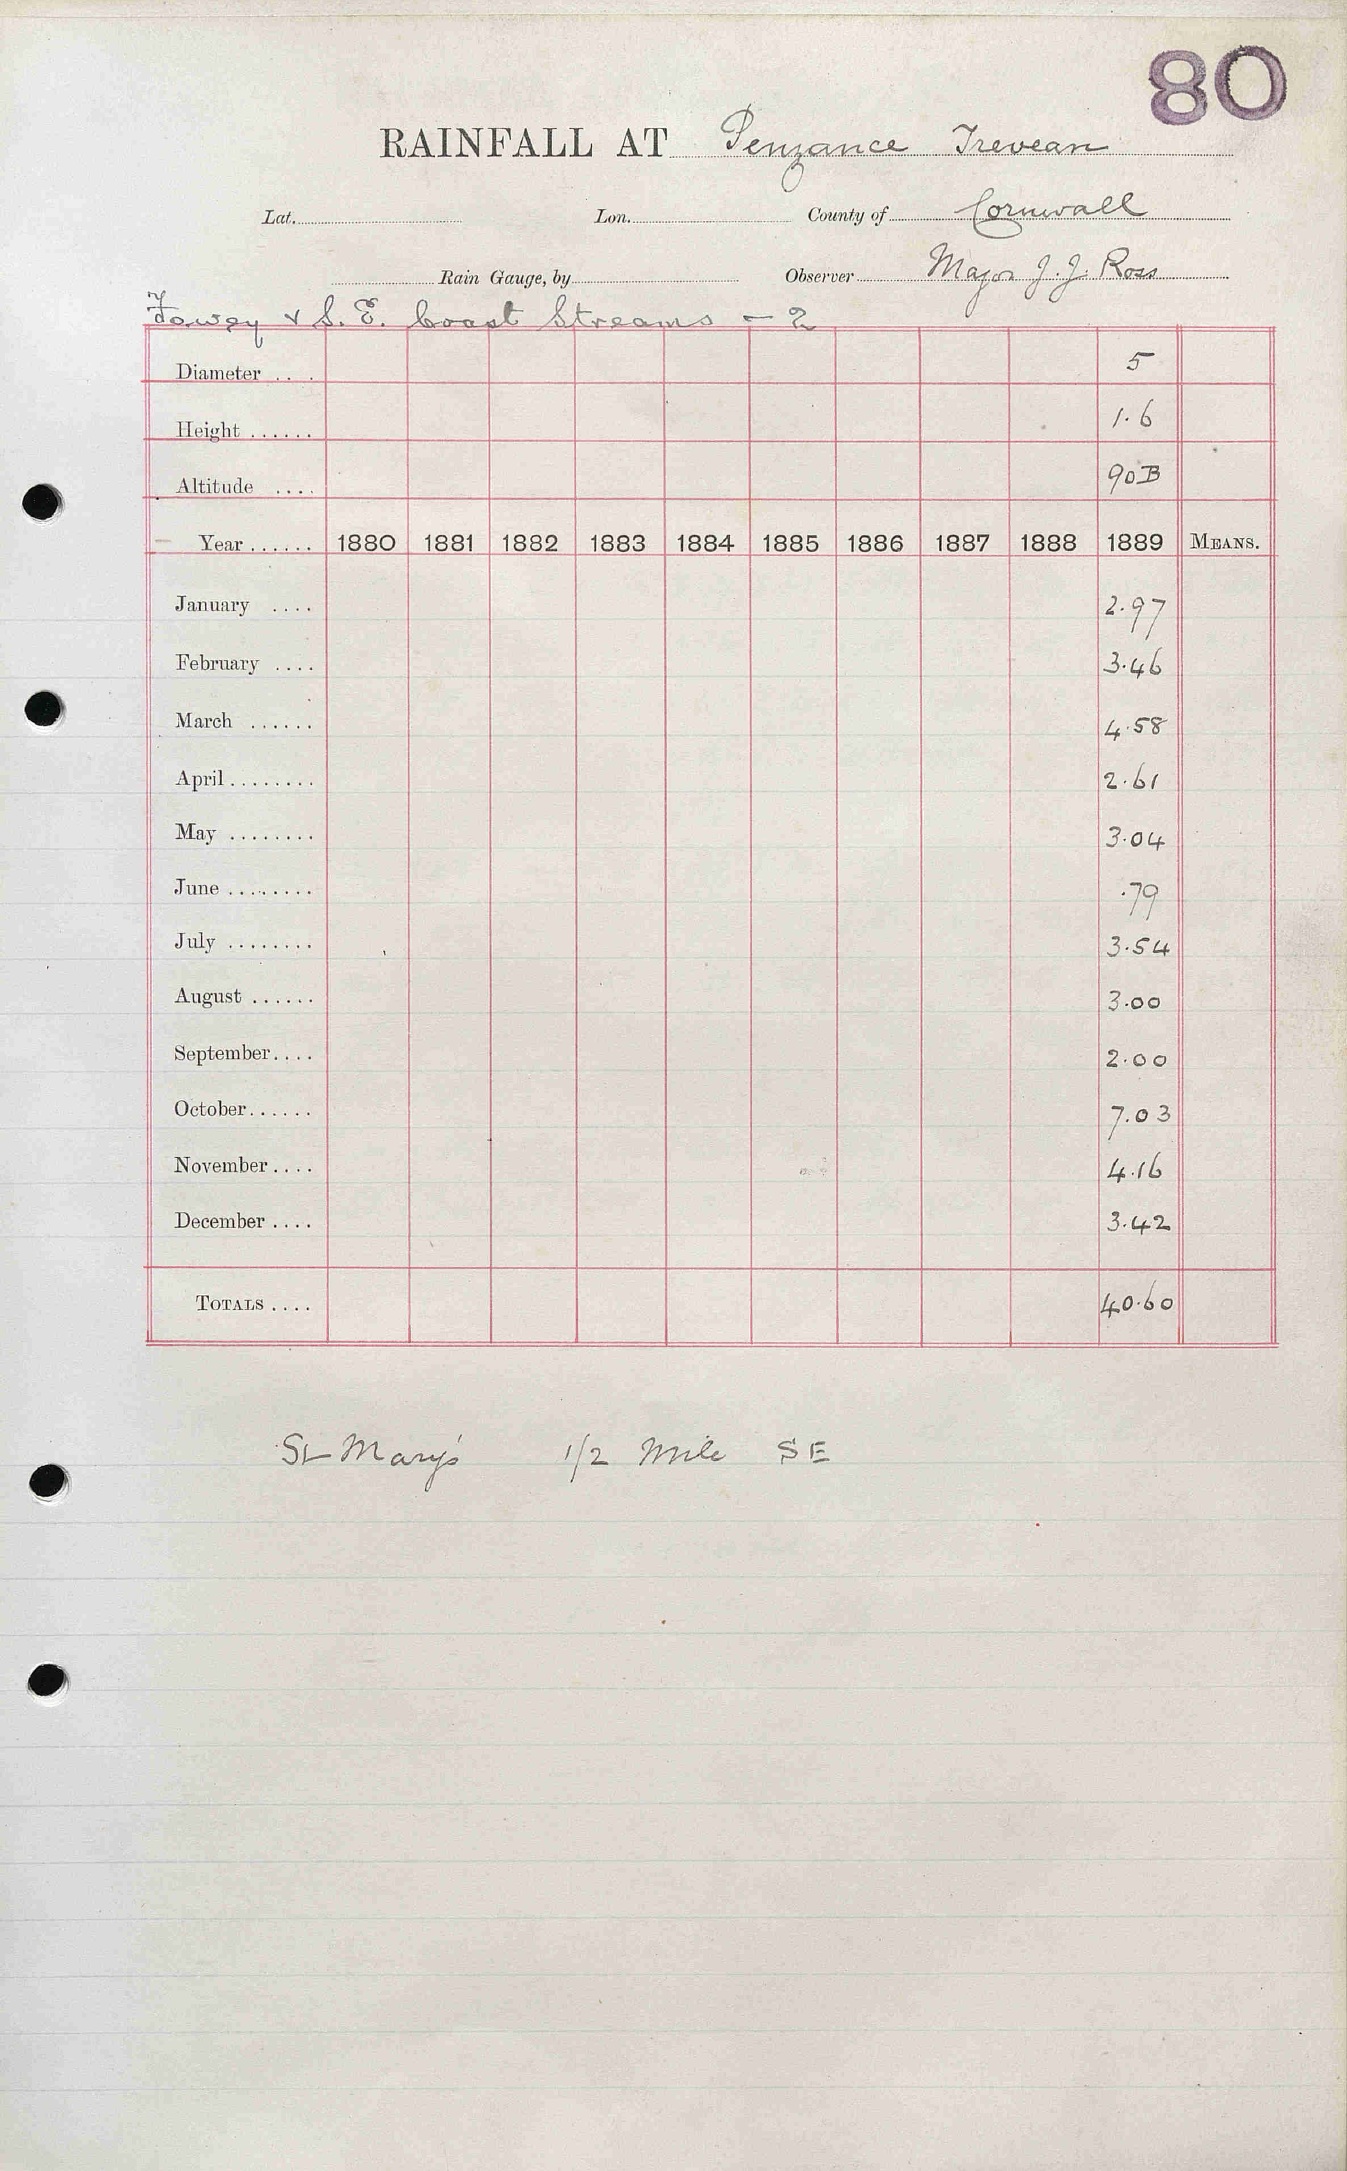 80
RAINFALL AT Penzance Trevean
Lat. Lon. County of Cornwall
Rain Gauge, by Observer Major J. J. Ross
Fowey & S. E. Coast Streams - 2
Diameter .... 5
Height ...... 1.6
Altitude .... 90B
Year ...... 1880 1881 1882 1883 1884 1885 1886 1887 1888 1889 MEANS.
January .... 2.97
February .... 3.46
March ...... 4.58
April ........ 2.61
May ........ 3.04
June ........ .79
July ........ 3.54
August ...... 3.00
September.... 2.00
October...... 7.03
November.... 4.16
December .... 3.42
TOTALS .... 40.60
St Mary's 1/2 Mile SE